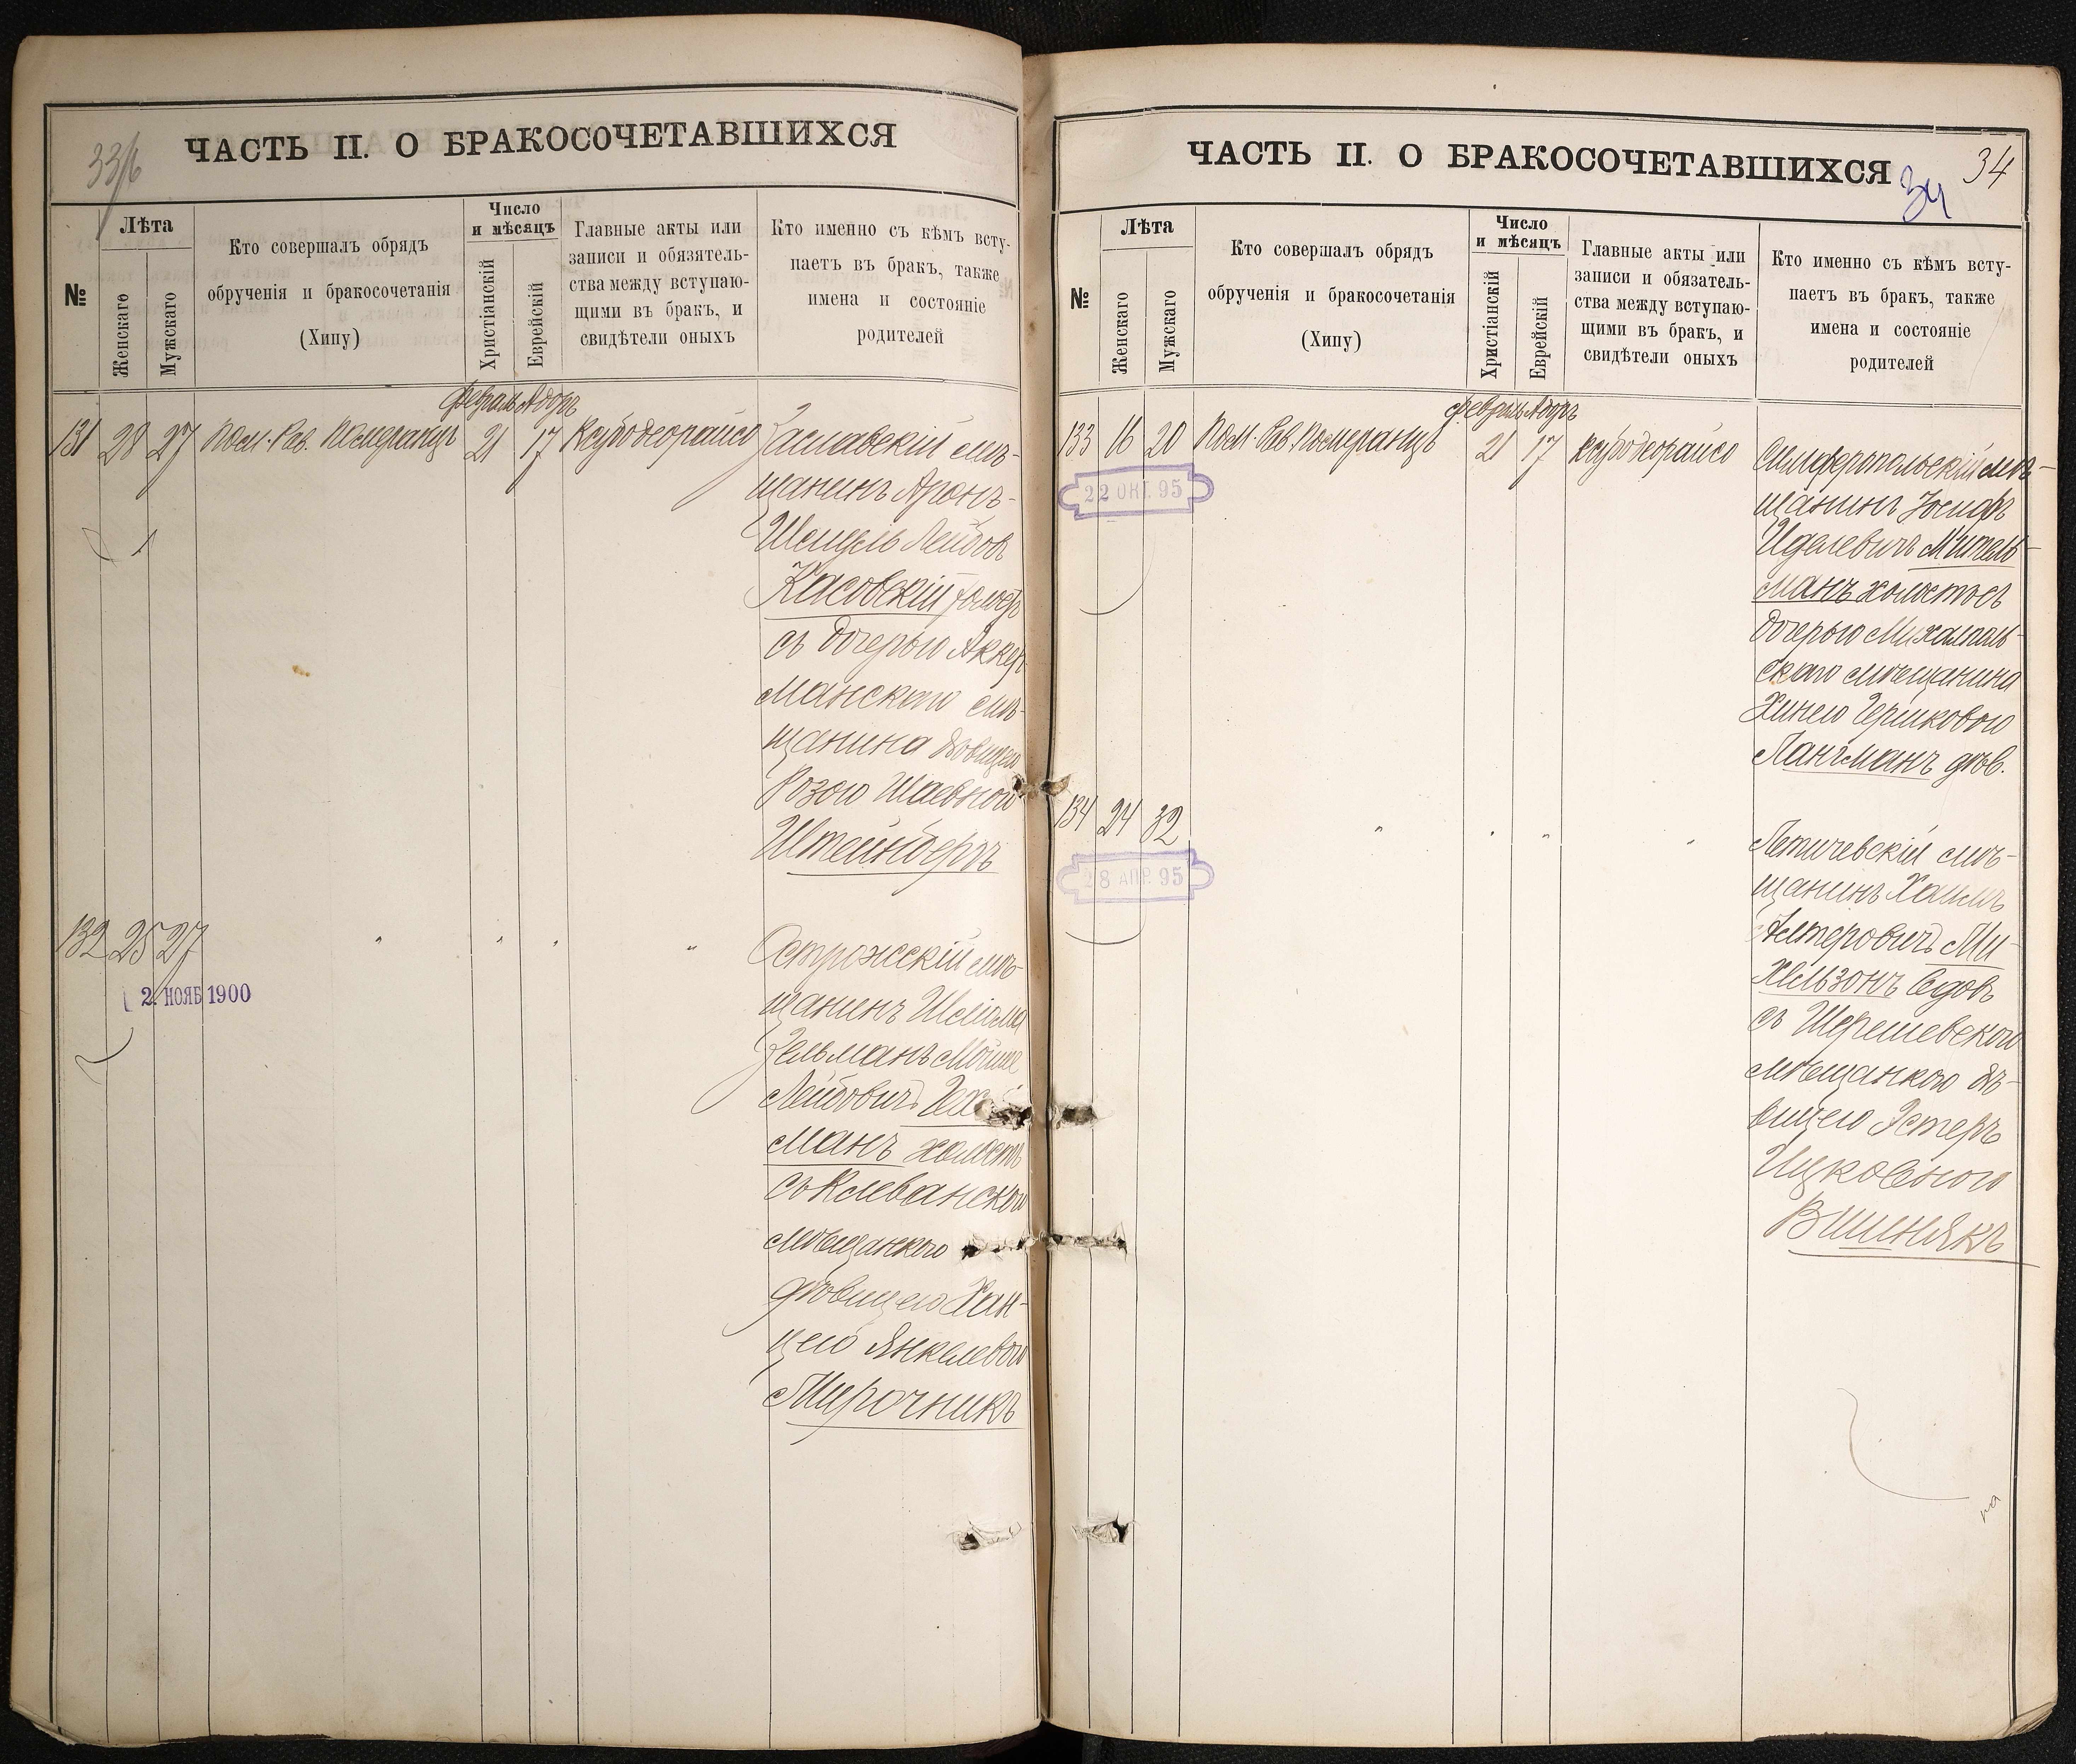 33/б
ЧАСТЬ II. О БРАКОСОЧЕТАВШИХСЯ
№
Лѣта
Женскаго
Мужскаго
Кто совершалъ обрядъ
обрученія и бракосочетанія
(Хипу)
Число
и мѣсяцъ
Христіанскій
Еврейскій
Главные акты или
записи и обязятель-
ства между вступаю-
щими въ бракъ, и
свидѣтели оныхъ
Кто именно съ кѣмъ всту-
паетъ въ бракъ, также
имена и состояніе
родителей
Февраль Адоръ
131 28 27 Пом. Рав. Померанцъ 21 17 Ксубо деорайсо Заславскій мѣ-
щанинъ Аронъ-
Лейбов
Касовскій холост
съ дочерью Аккер
манского мѣ-
щанина дѣвицею
Розою Шаевной
Штейнбергъ
132 25 27 " " " " Острожскій мѣ-
2. НОЯБ 1900
щанинъ Шліома
Зельманъ Мойше
Лейбовичъ
манъ холостъ
съ Клеванскою
мѣщанкою
дѣвицею Хан-
цею Янкелевою
Мирочникъ
34
34
ЧАСТЬ II. О БРАКОСОЧЕТАВШИХСЯ
№
Лѣта
Женскаго
Мужскаго
Кто совершалъ обрядъ
обрученія и бракосочетанія
(Хипу)
Число
и мѣсяцъ
Христіанскій
Еврейскій
Главные акты или
записи и обязатель-
ства между вступаю-
щими въ бракъ, и
свидѣтели оныхъ
Кто именно съ кѣмъ всту-
паетъ въ бракъ, также
имена и состояніе
родителей
Февраль Адоръ
133 16 20 Пом. Рав. Померанцъ 21 17 Ксубо деорайсо Симферопольскій мѣ-
22 ОКТ. 95
щанинъ Іосифъ
Иделевичъ Митель-
манъ холостъ съ
дочерью Михалполь-
скаго мѣщанина
Хинею Гершковою
Лангманъ дѣв.
134 24 32 " " " " Летичевскій мѣ-
28 АПР. 95
щанинъ Хаимъ
Алтеровичъ Ми-
хельзонъ вдов
съ Шерешевскою
мѣщанкою дѣ-
вицею Эстеръ
Ицковною
Вишнякъ